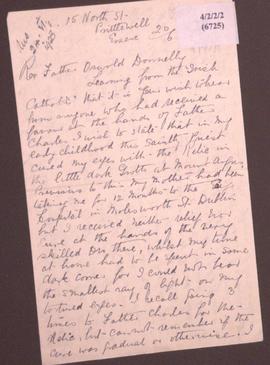 4/2/2/2
(6725)
15 North St.
Prittlewell
Essex
Rev Father Oswald Donnelly
Learning from the Irish
Catholic that it is your wish to hear
from anyone who had received a
favour at the hands of Father
Charles, I wish to state that in my
early childhood this Saintly Priest
cured my eyes with the Relic in
the little dark Grotto at Mount Argus.
Previous to this my Mother had been
taking me for 12 months to the
Hospital in Molesworth St. Dublin
but I received neither relief nor
cure at the hands of the very
skilled Drs there, whilst my time
at home had to be spent in some
dark corner for I could not bear
the smallest ray of light on my
tortured eyes. I recall going 3
times to Father Charles for the
Relic, but cannot remember if the
cure was gradual or otherwise. I